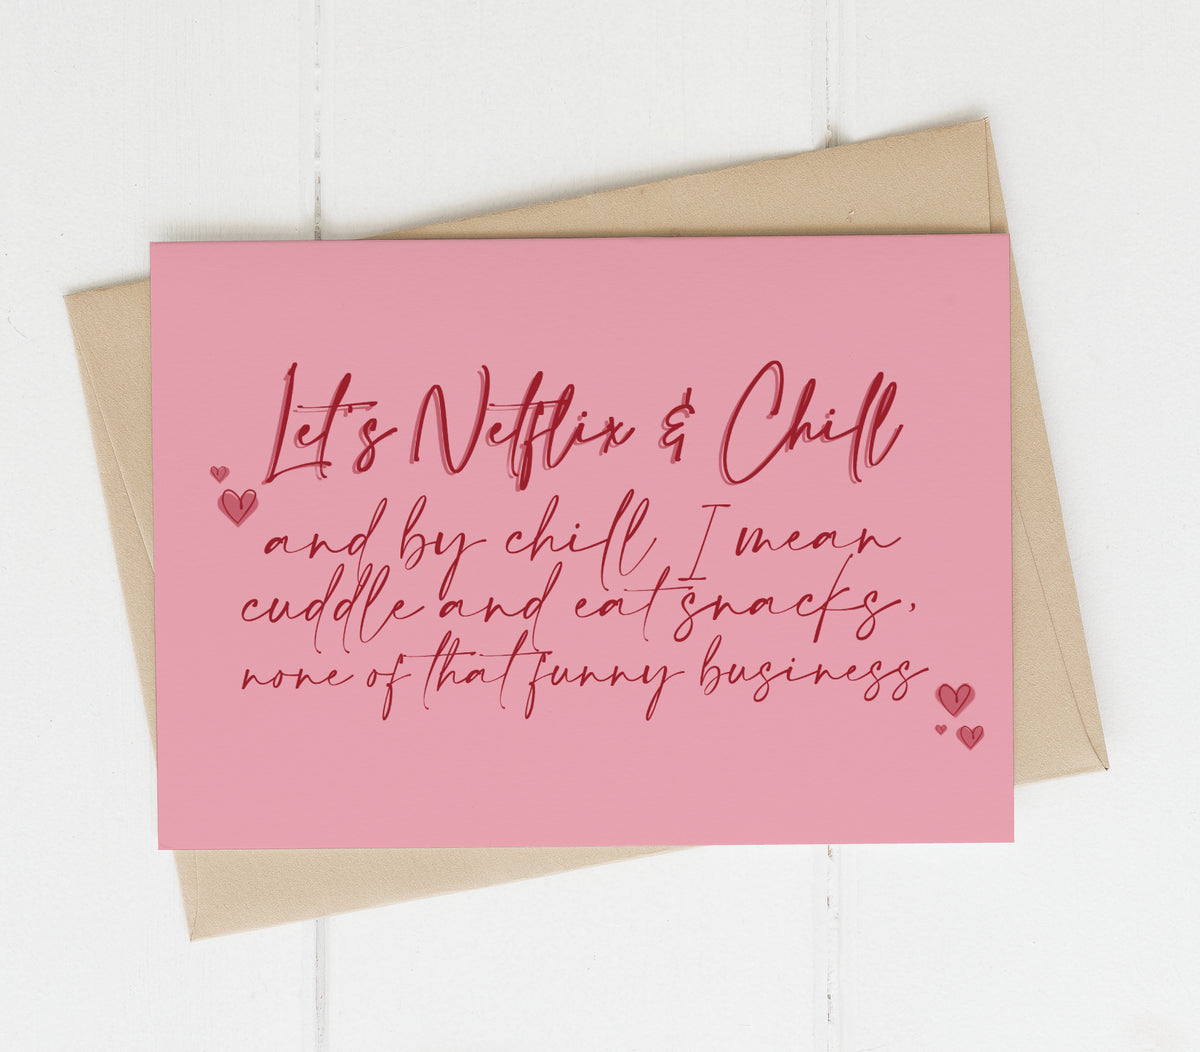 Let's Netflix & Chill
and by chill, I mean
cuddle and eat snacks,
none of that funny business